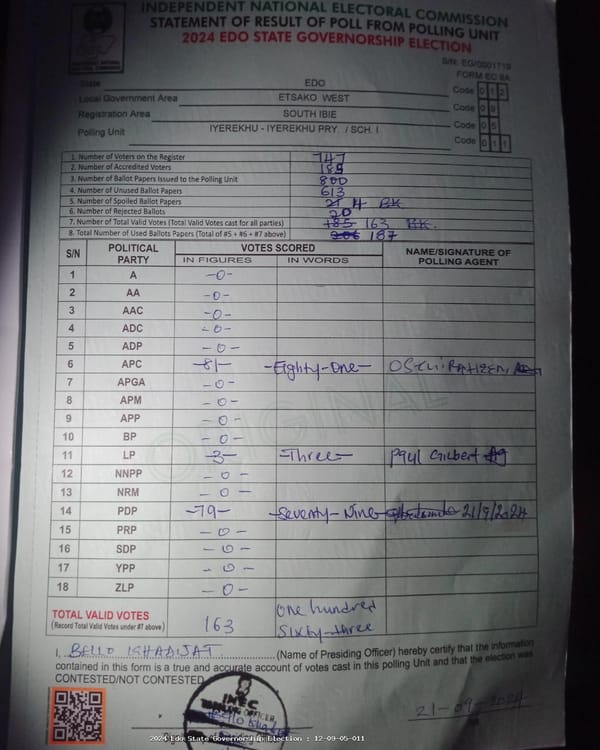 INDEPENDENT NATIONAL ELECTORAL COMMISSION
STATEMENT OF RESULT OF POLL FROM POLLING UNIT
2024 EDO STATE GOVERNORSHIP ELECTION
S/N: EG/0001719
FORM EC 8A
State EDO Code 0 1 2
Local Government Area ETSAKO WEST Code 0 9
Registration Area SOUTH IBIE Code 0 5
Polling Unit IYEREKHU - IYEREKHU PRY. / SCH. I Code 0 1 1
1. Number of Voters on the Register 747
2. Number of Accredited Voters 185
3. Number of Ballot Papers Issued to the Polling Unit 800
4. Number of Unused Ballot Papers 613
5. Number of Spoiled Ballot Papers 21 4 BK
6. Number of Rejected Ballots 20
7. Number of Total Valid Votes (Total Valid Votes cast for all parties) 185 163 BK.
8. Total Number of Used Ballots Papers (Total of #5 + #6 + #7 above) 206 187
S/N POLITICAL PARTY VOTES SCORED NAME/SIGNATURE OF POLLING AGENT
IN FIGURES IN WORDS
1 A -0-
2 AA -0-
3 AAC -0-
4 ADC -0-
5 ADP -0-
6 APC -81- -Eighty-One-
7 APGA -0-
8 APM -0-
9 APP -0-
10 BP -0-
11 LP -3- -Three- Paul Gilbert
12 NNPP -0-
13 NRM -0-
14 PDP -79- -Seventy-Nine- 21/9/2024
15 PRP -0-
16 SDP -0-
17 YPP -0-
18 ZLP -0-
TOTAL VALID VOTES 163 One hundred
(Record Total Valid Votes under #7 above) Sixty-three
I, BELLO KHADIJAT (Name of Presiding Officer) hereby certify that the information
contained in this form is a true and accurate account of votes cast in this polling Unit and that the election was
CONTESTED/NOT CONTESTED
INEC
21-09-2024
2024 Edo State Governorship Election : 12-09-05-011